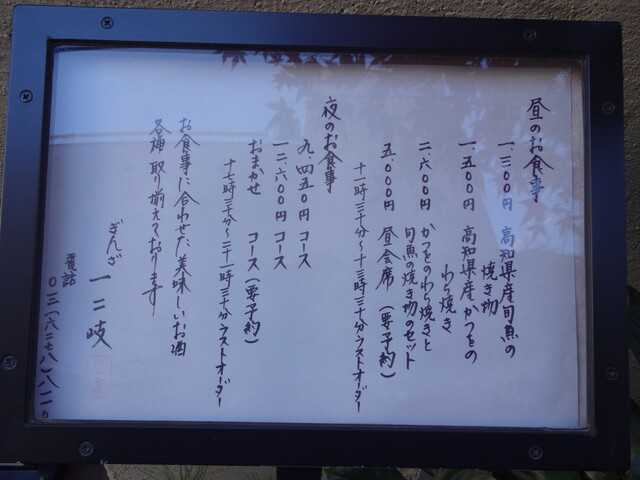 昼のお食事
一、三〇〇円 高知県産旬魚の
焼き物
一、五〇〇円 高知県産かつをの
わら焼き
二、六〇〇円 かつをのわら焼きと
旬魚の焼き物のセット
五、〇〇〇円 昼会席(要予約)
十一時三十分〜十三時三十分ラストオーダー
夜のお食事
九、四五〇円 コース
一二、六〇〇円 コース
おまかせ コース(要予約)
十七時三十分〜二十一時三十分ラストオーダー
お食事に合わせた美味しいお酒
各種取り揃えております
ぎんざ
一二岐
電話
〇三(六二七八)八一一〇